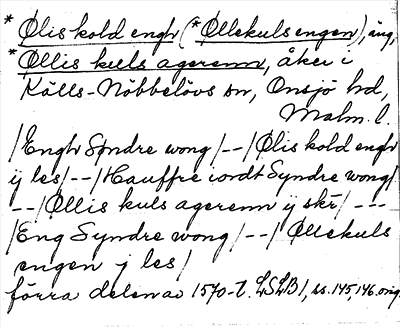 * Ølis kold engh (* Øllekulsengen), äng,
* Øllis kuls agerenn, åker i
Källs-Nöbbelövs sn, Onsjö hd,
Malm. l.
/Engh Syndre wong/--/Ølis kold engh
ij les/--/Hauffre iordt Syndre wong/
--/Øllis kuls agerenn ij skr/---
/Eng Syndre wong/--/Øllekuls
engen j les/
förra delen av 1570-t. LSLB1, ss. 145, 146. orig.